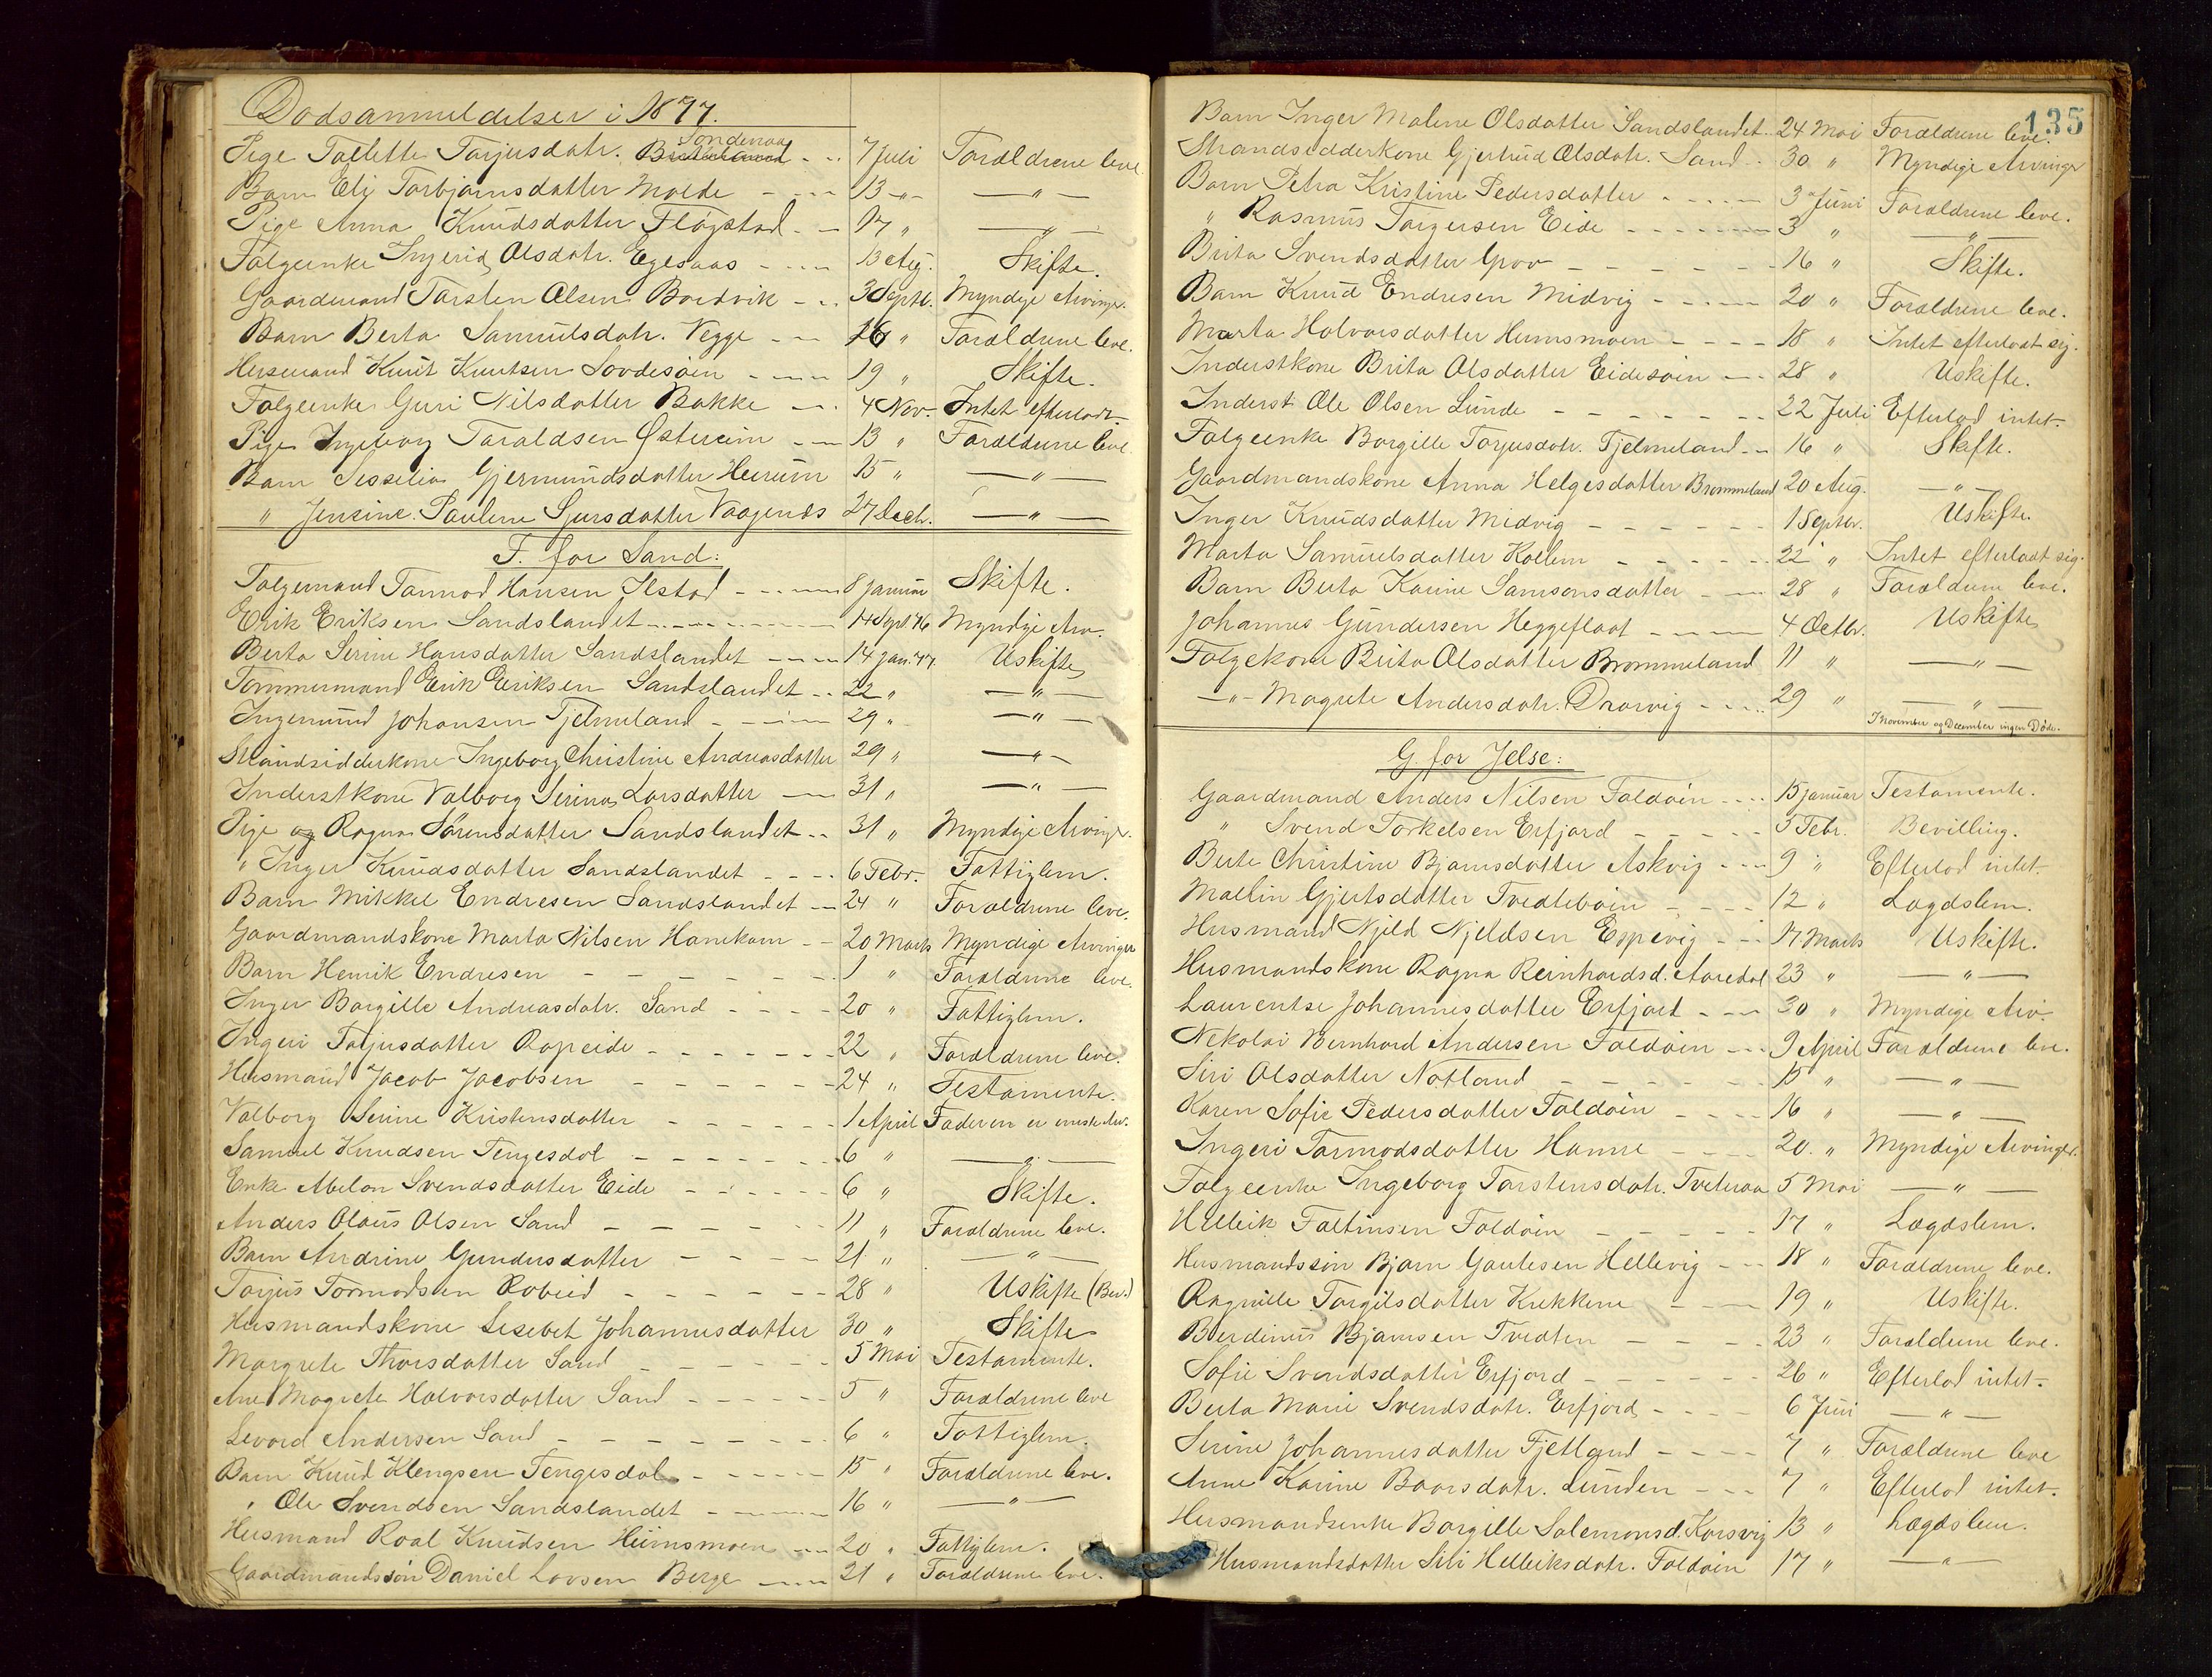 Dødsanmeldelser i 1877.
Pige Tallette Tarjusdatr. Søndenaa - - 7 Juli Forældrene leve.
Barn Eli Torbjørnsdatter Molde - - - 13 -"- — " —
Pige Anna Knudsdatter Fløgstad - - 17 " — " —
Følgeenke Ingerid Olsdatr. Egesaas - - - 13 Aug. Skifte.
Gaardmand Tarsten Olsen Bordvik - - 3 Septb. Myndige Arvinger.
Barn Berta Samuelsdatr. Vegge - - - 16 " Forældrene leve.
Husmand Knut Knutsen Sovdesøien - - - 19 " Skifte.
Følgeenke Guri Nilsdatter Bakke - - 4 Nov. Intet efterladt
Pige Ingeborg Taraldsen Østereim - - - 13 " Forældrene leve.
Barn Sisselia Gjermundsdatter Herum 15 " — " —
" Jensine Pauline Sjursdatter Vaagenes 27 Decb. — " —
F. for Sand:
Følgemand Tarmod Hansen Ilstad - - - 8 Januar Skifte.
Erik Eriksen Sandslandet - - - 14 Sept 76 Myndige Arv.
Berta Serine Hansdatter Sandslandet - - - 14 Jan. 77. Uskifte
Tømmermand Erik Eriksen Sandslandet - - 22 " — " —
Ingemund Johansen Tjelmeland - - - 29 " — " —
Strandsidderkone Ingeborg Christine Andreasdatter 29 " — " —
Inderstkone Valborg Serina Larsdatter - - 31 " — " —
Pige og Ragna Sørensdatter Sandslandet - - 31 " Myndige Arvinger.
" Inger Knudsdatter Sandslandet - - - - 6 Febr. Fattiglem.
Barn Mikkel Endresen Sandslandet - - 24 " Forældrene leve.
Gaardmandskone Marta Nilsen Hanekam - - 20 Marts Myndige Arvinger
Barn Henrik Endresen - - - - - - 1 " Forældrene leve.
Inger Borgille Andreasdatr. Sand - - - - 20 " Fattiglem.
Ingeri Tarjusdatter Rapeide - - - - - - 22 " Forældrene leve.
Husmand Jacob Jacobsen - - - - - - 24 " Testamente.
Valborg Serine Kristensdatter - - - - - - 1 April Faderen er eneste Arv.
Samuel Knudsen Tengesdal - - - - - - 6 " — " —
Enke Abelon Svendsdatter Eide - - - - - 6 " Skifte.
Anders Olaus Olsen Sand - - - - - 11 " Forældrene leve.
Barn Andrine Gundersdatter - - - - 21 " — " —
Tarjus Tormodsen Robeid - - - - - - 28 " Uskifte (Bev.)
Husmandskone Lisebet Johannesdatter 30 " Skifte
Margrete Thorsdatter Sand - - - - - - 5 Mai Testamente.
Ane Magrete Halvorsdatter Sand - - - - - 5 " Forældrene leve
Levard Andersen Sand - - - - - - - 6 " Fattiglem.
Barn Knud Klengsen Tengesdal - - - - - 15 " Forældrene leve.
" Ole Svendsen Sandslandet - - - - - 16 " — " —
Husmand Roal Knudsen Hiimsmoen - - - 20 " Fattiglem.
Gaardmandssøn Daniel Larsen Berge - - - 21 " Forældrene leve.
135
Barn Inger Malene Olsdatter Sandslandet - - 24 Mai Forældrene leve.
Strandsidderkone Gjertrud Olsdatr. Sand - - 30 " Myndige Arvinger
Barn Petra Kristine Pedersdatter - - - - - 3 Juni Forældrene leve.
" Rasmus Torgersen Eide - - - - - - - 3 " — " —
Brita Svendsdatter Groo - - - - - - - 16 " Skifte.
Barn Knud Endresen Midvig - - - - - 20 " Forældrene leve.
Marta Halvorsdatter Humsmoen - - - - 18 " Intet efterladt sig.
Inderstkone Brita Olsdatter Eidesøin - - - 28 " Uskifte.
Inderst Ole Olsen Lunde - - - - - - - 22 Juli Efterlod intet.
Følgeenke Borgille Torjusdatr. Tjelmeland - - 16 " Skifte.
Gaardmandskone Anna Helgesdatter Brommeland 20 Aug. — " —
Inger Knudsdatter Midvig - - - - - - 1 Septbr. Uskifte.
Marta Samuelsdatter Kollem - - - - - 22 " Intet efterladt sig.
Barn Berta Karine Samsonsdatter - - - 28 " Forældrene leve.
Johannes Gundersen Heggeflaat - - - - 4 Octbr. Uskifte
Følgekone Brita Olsdatter Brommeland 11 " — " —
— " — Magrete Andersdatr. Draarvig - - - - 29 " — " —
I November og December ingen Døde.
G. for Jelse:
Gaardmand Anders Nilsen Foldøin - - - - 15 Januar Testamente.
" Svend Torkelsen Erfjord - - - - - 3 Febr. Bevilling.
Berte Christine Bjørnsdatter Askvig - - - 9 " Efterlod intet.
Mallin Gjertsdatter Tvedtebøin - - - - 12 " Lægdslem.
Husmand Njeld Njeldsen Espevig - - - 17 Marts Uskifte.
Husmandskone Ragna Reinhardsd. Aaredal 23 " — " —
Laurentse Johannesdatter Erfjord - - - 30 " Myndige Arv.
Nekolai Bernhard Andersen Foldøin - - - 9 April Forældrene leve.
Siri Olsdatter Natland - - - - - - 15 " — " —
Karen Sofie Pedersdatter Foldøin - - - - 16 " — " —
Ingeri Tarmodsdatter Hamre - - - - 20. " Myndige Arvinger.
Følgeenke Ingeborg Tarstensdatr. Tveteraa 5 Mai — " —
Helleik Faltinsen Foldøin - - - - - 17 " Lægdslem.
Husmandssøn Bjørn Gautesen Hellevig - - - 18 " Forældrene leve.
Ragnille Torgilsdatter Krekkene - - - - 19 " Uskifte.
Berdinus Bjørnsen Tvedten - - - - - 23 " Forældrene leve.
Sofie Svendsdatter Erfjord - - - - - - 26 " Efterlod intet.
Berta Marie Svendsdatr. Erfjord - - - - 6 Juni — " —
Serine Johannesdatter Fjetland - - - - 7 " Forældrene leve
Anne Karine Baarsdatr. Lunden - - - 7 " Efterlod intet.
Husmandsenke Borgille Salemonsd. Korsvig 13 " Lægdslem.
Husmandsdatter Sibi Helleiksdatr. Foldøin 17 " — " —